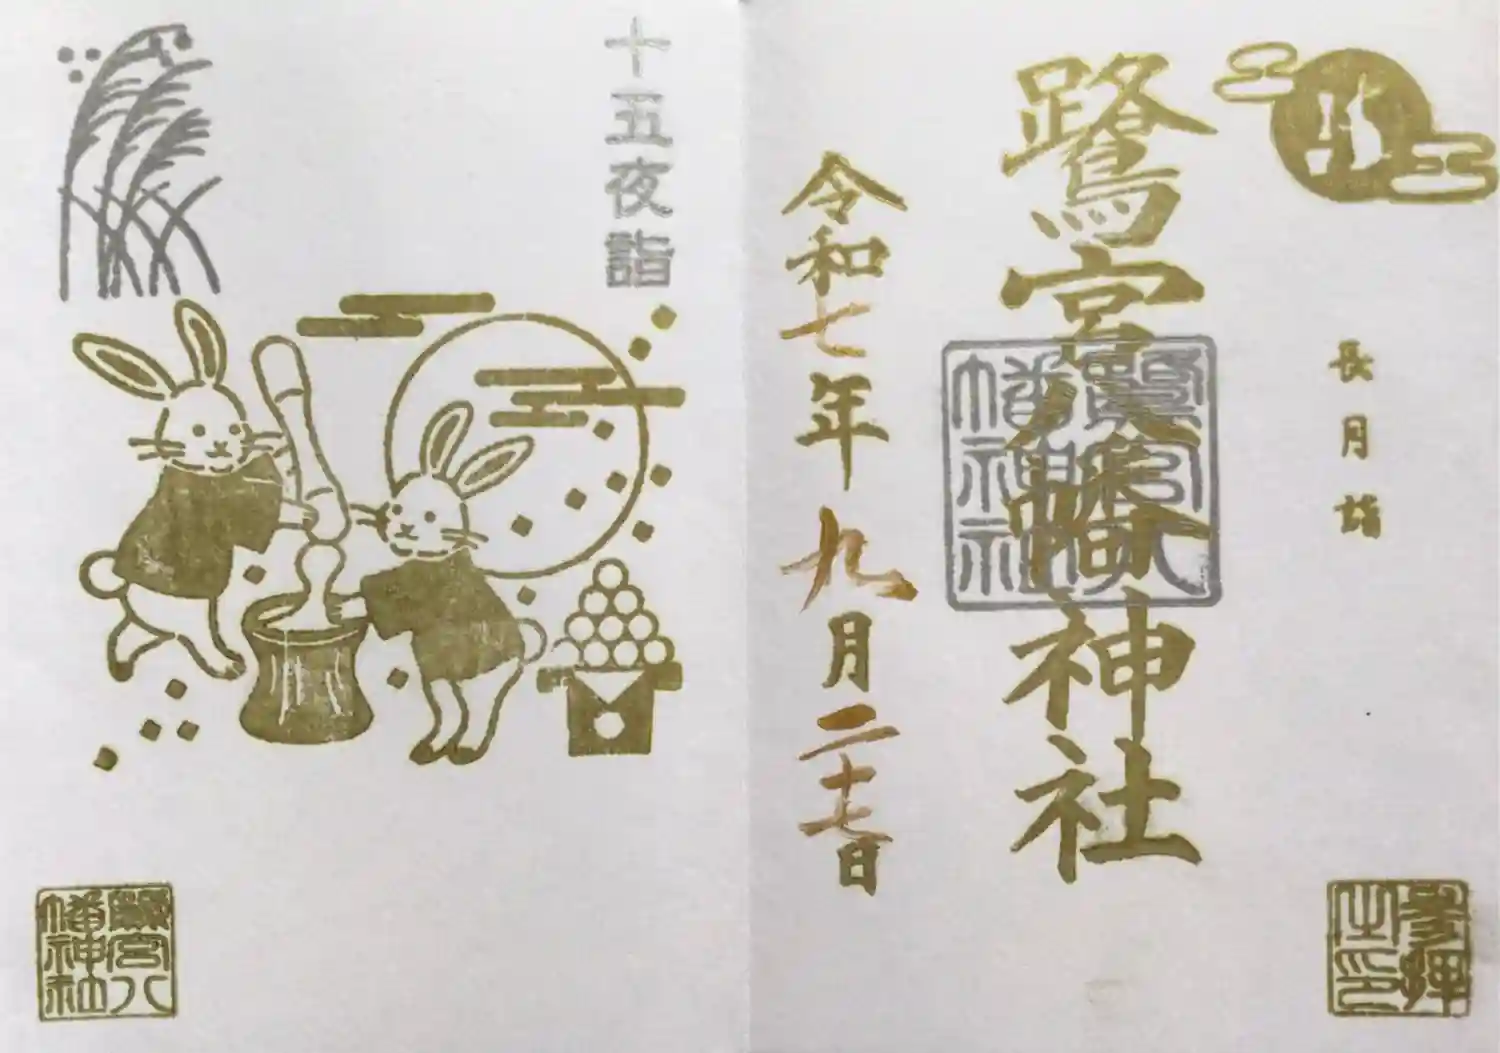 長月詣
参拝
之印
鷺宮八幡神社
鷺宮八
幡神社
令和七年九月二十七日
十五夜詣
鷺宮八
幡神社